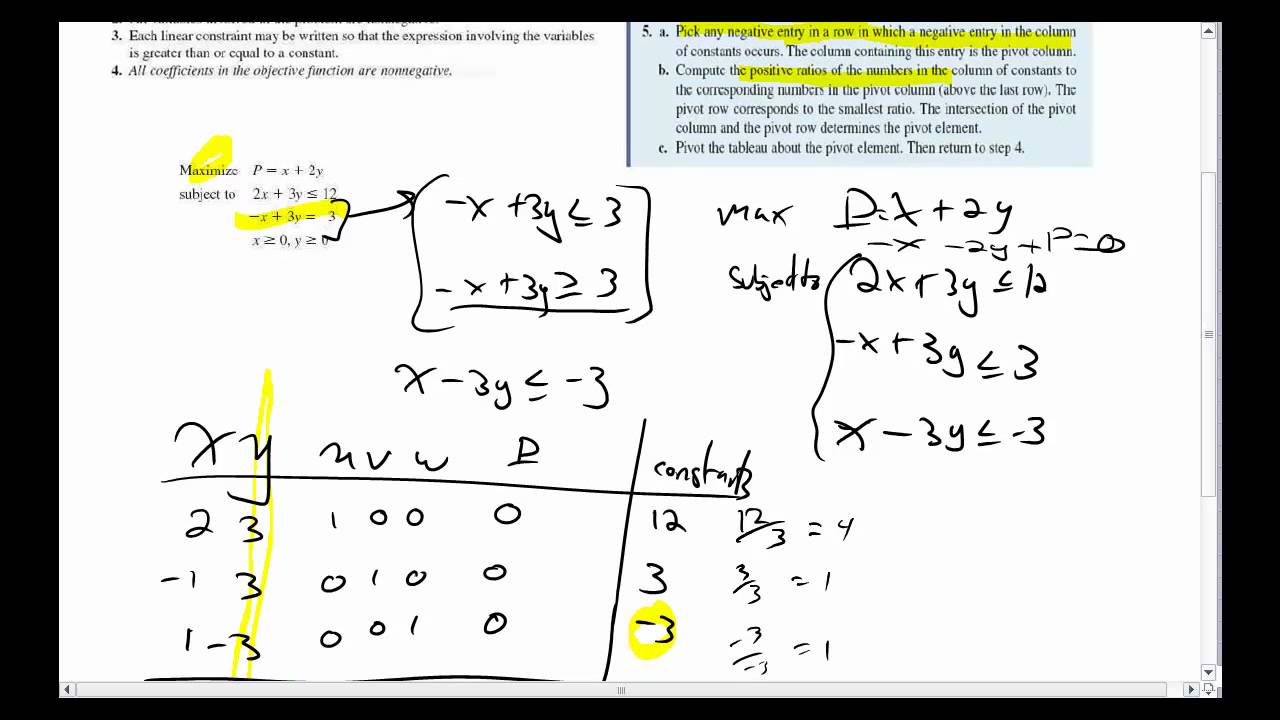 3. Each linear constraint may be written so that the expression involving the variables
is greater than or equal to a constant.
4. All coefficients in the objective function are nonnegative.
5. a. Pick any negative entry in a row in which a negative entry in the column
of constants occurs. The column containing this entry is the pivot column.
b. Compute the positive ratios of the numbers in the column of constants to
the corresponding numbers in the pivot column (above the last row). The
pivot row corresponds to the smallest ratio. The intersection of the pivot
column and the pivot row determines the pivot element.
c. Pivot the tableau about the pivot element. Then return to step 4.
Maximize P = x + 2y
subject to 2x + 3y ≤ 12
-x + 3y = 3
x ≥ 0, y ≥ 0
-x + 3y ≤ 3
-x + 3y ≥ 3
x - 3y ≤ -3
max P = x + 2y
-x - 2y + P = 0
subject to 2x + 3y ≤ 12
-x + 3y ≤ 3
x - 3y ≤ -3
x y u v w P constants
2 3 1 0 0 0 12 12/3 = 4
-1 3 0 1 0 0 3 3/3 = 1
1 -3 0 0 1 0 -3 -3/-3 = 1